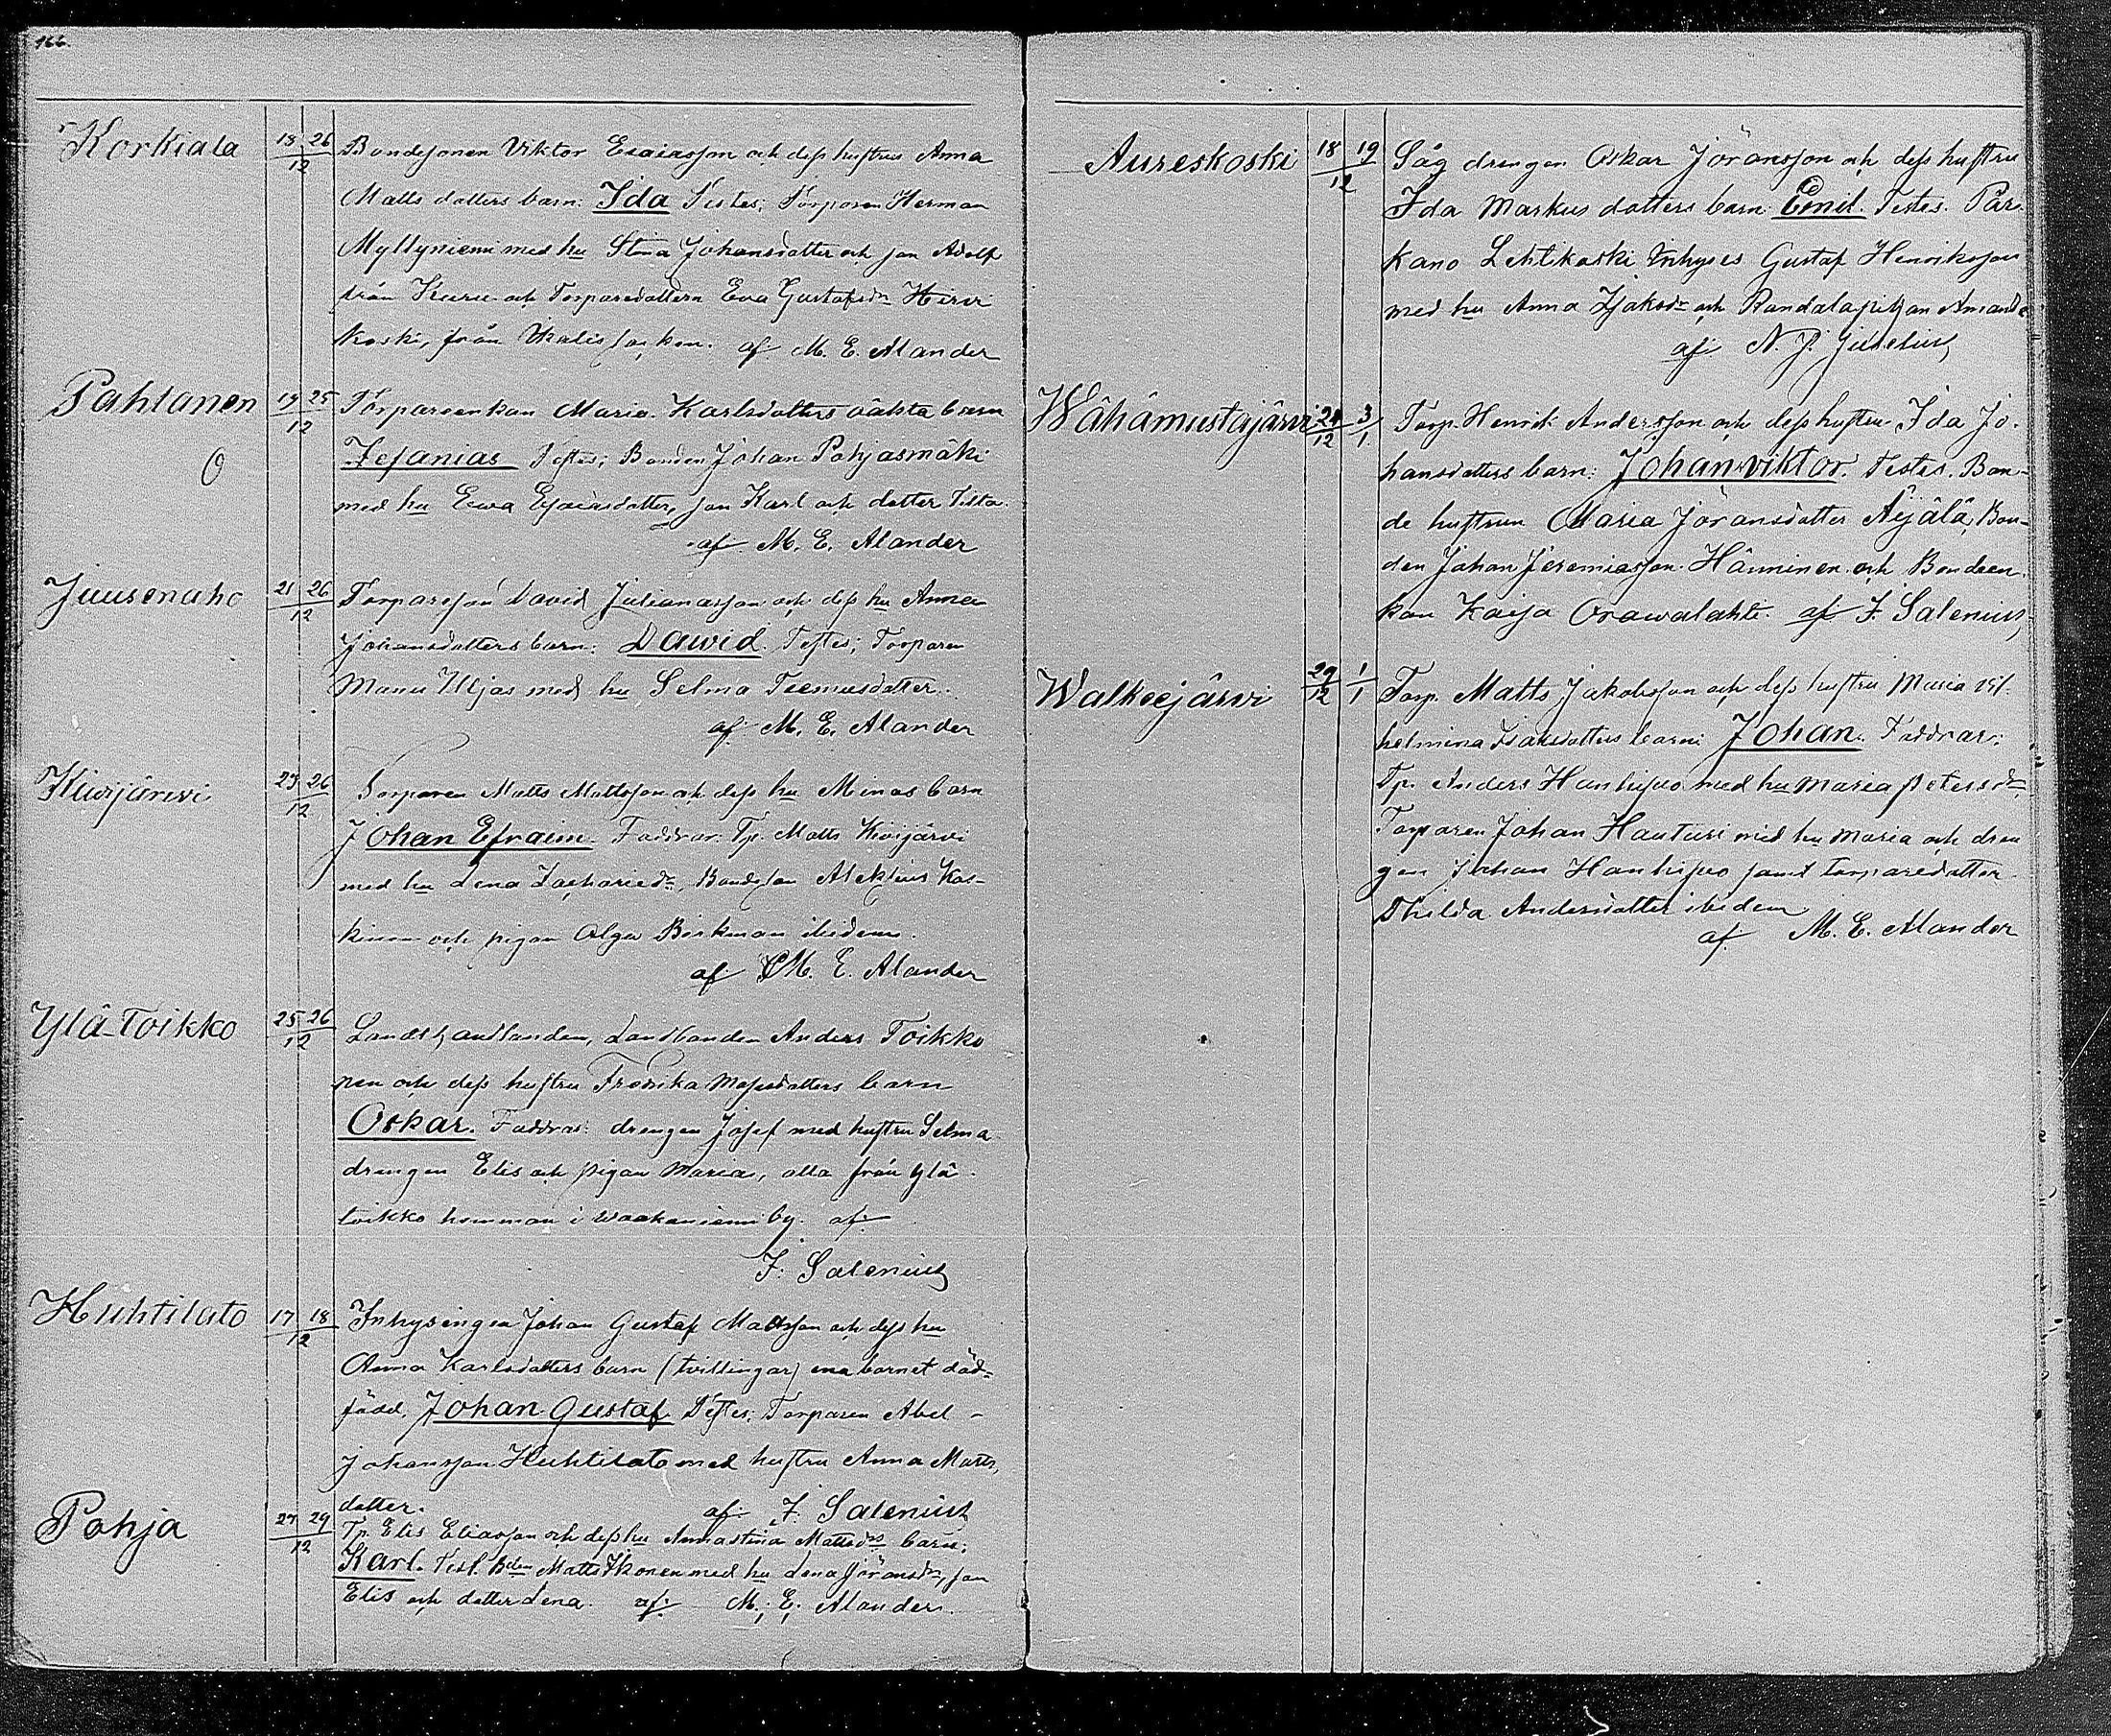 166.
Korkiala 18 26 / 12 Bondesonen Viktor Esaiasson och dess hustrus Anna
Matts dotters barn: Ida Testes; Torparen Herman
Myllyniemi med hu Stina Johansdotter och son Adolf
från Kuru och Torparedottern Eva Gustafsdr Hirvi
koski, från Ikalis socken. af M. E. Alander
Pahtanen 19 25 / 12 Torpareenkan Maria Karlsdotters oäkta barn
O Zefanias Testes; Bonden Johan Pohjasmäki
med hu Ewa Esaiasdotter, son Karl och dotter
af M. E. Alander
Juusenaho 21 26 / 12 Torpareson David Julianasson och dess hu Anna
Johansdotters barn: Dawid. Testes; Torparen
Manu Uljas med hu Selma Teemusdotter.
af M. E. Alander
Kiwijärwi 23 26 / 12 Torparen Matts Mattsson och dess hu Minas barn
Johan Efraim. Faddrar. Tp. Matts Kivijärvi
med hu Lena Zachariedr, Aleksius Kos-
kinen och pigan Olga Birkman ibidem.
af M. E. Alander
Ylä-Toikko 25 26 / 12 Landthandlanden, Landbonden Anders Toikko
nen och dess hustru Fredrika Mosesdotters barn
Oskar. Faddrar: drengen Josef med hustru Selma
drengen Elis och pigan Maria, alla från Ylä
toikko hemman i Waakaniemi by. af
F. Salenius
Huhtilato 17 18 / 12 Inhysingen Johan Gustaf Mattsson och dess hu
Anna Karlsdotters barn (tvillingar) ena barnet död-
född, Johan Gustaf. Testes; Torparen Abel
Johansson Huhtilato med hustru Anna Matts,
dotter. af F. Salenius
Pohja 27 29 / 12 Tp. Elis Eliasson och dess hu Annastina Mattsdrs barn;
Karl. Test. Bden Matts Ikonen med hu Lena Jöransdr, son
Elis och dotter Lena. af M. E. Alander.
Aureskoski 18 19 / 12 Såg drengen Oskar Jöransson och dess hustru
Ida Markus dotters barn Emil. Testes. Par
kano Lehtikoski Inhyses Gustaf Henriksson
med hu Anna Isaksdr och Randalapigan Amanda
af N. J. Juselius,
Wähämustajärvi 24 / 12 3 / 1 Torp. Henrik Andersson och dess hustru Ida Jo.
hansdotters barn: Johan Viktor. Testes. Bon-
de hustrun Maria Jöransdotter Äijälä, Bon-
den Johan Jeremiasson Hänninen och Bondeen.
kan Kaisa Orawalahti. af F. Salenius,
Walkeejärvi 29 / 12 1 / 1 Torp. Matts Jakobsson och dess hustru Maria Vil-
helmina Isaksdotters barn: Johan. Faddrar:
Tp. Anders Hanhipuo med hu Maria Petersdr,
Torparen Johan Hauturi med hu Maria och dren
gen Johan Hanhipuo samt torparedotter
Thilda Andersdotter ibidem
af M. E. Alander